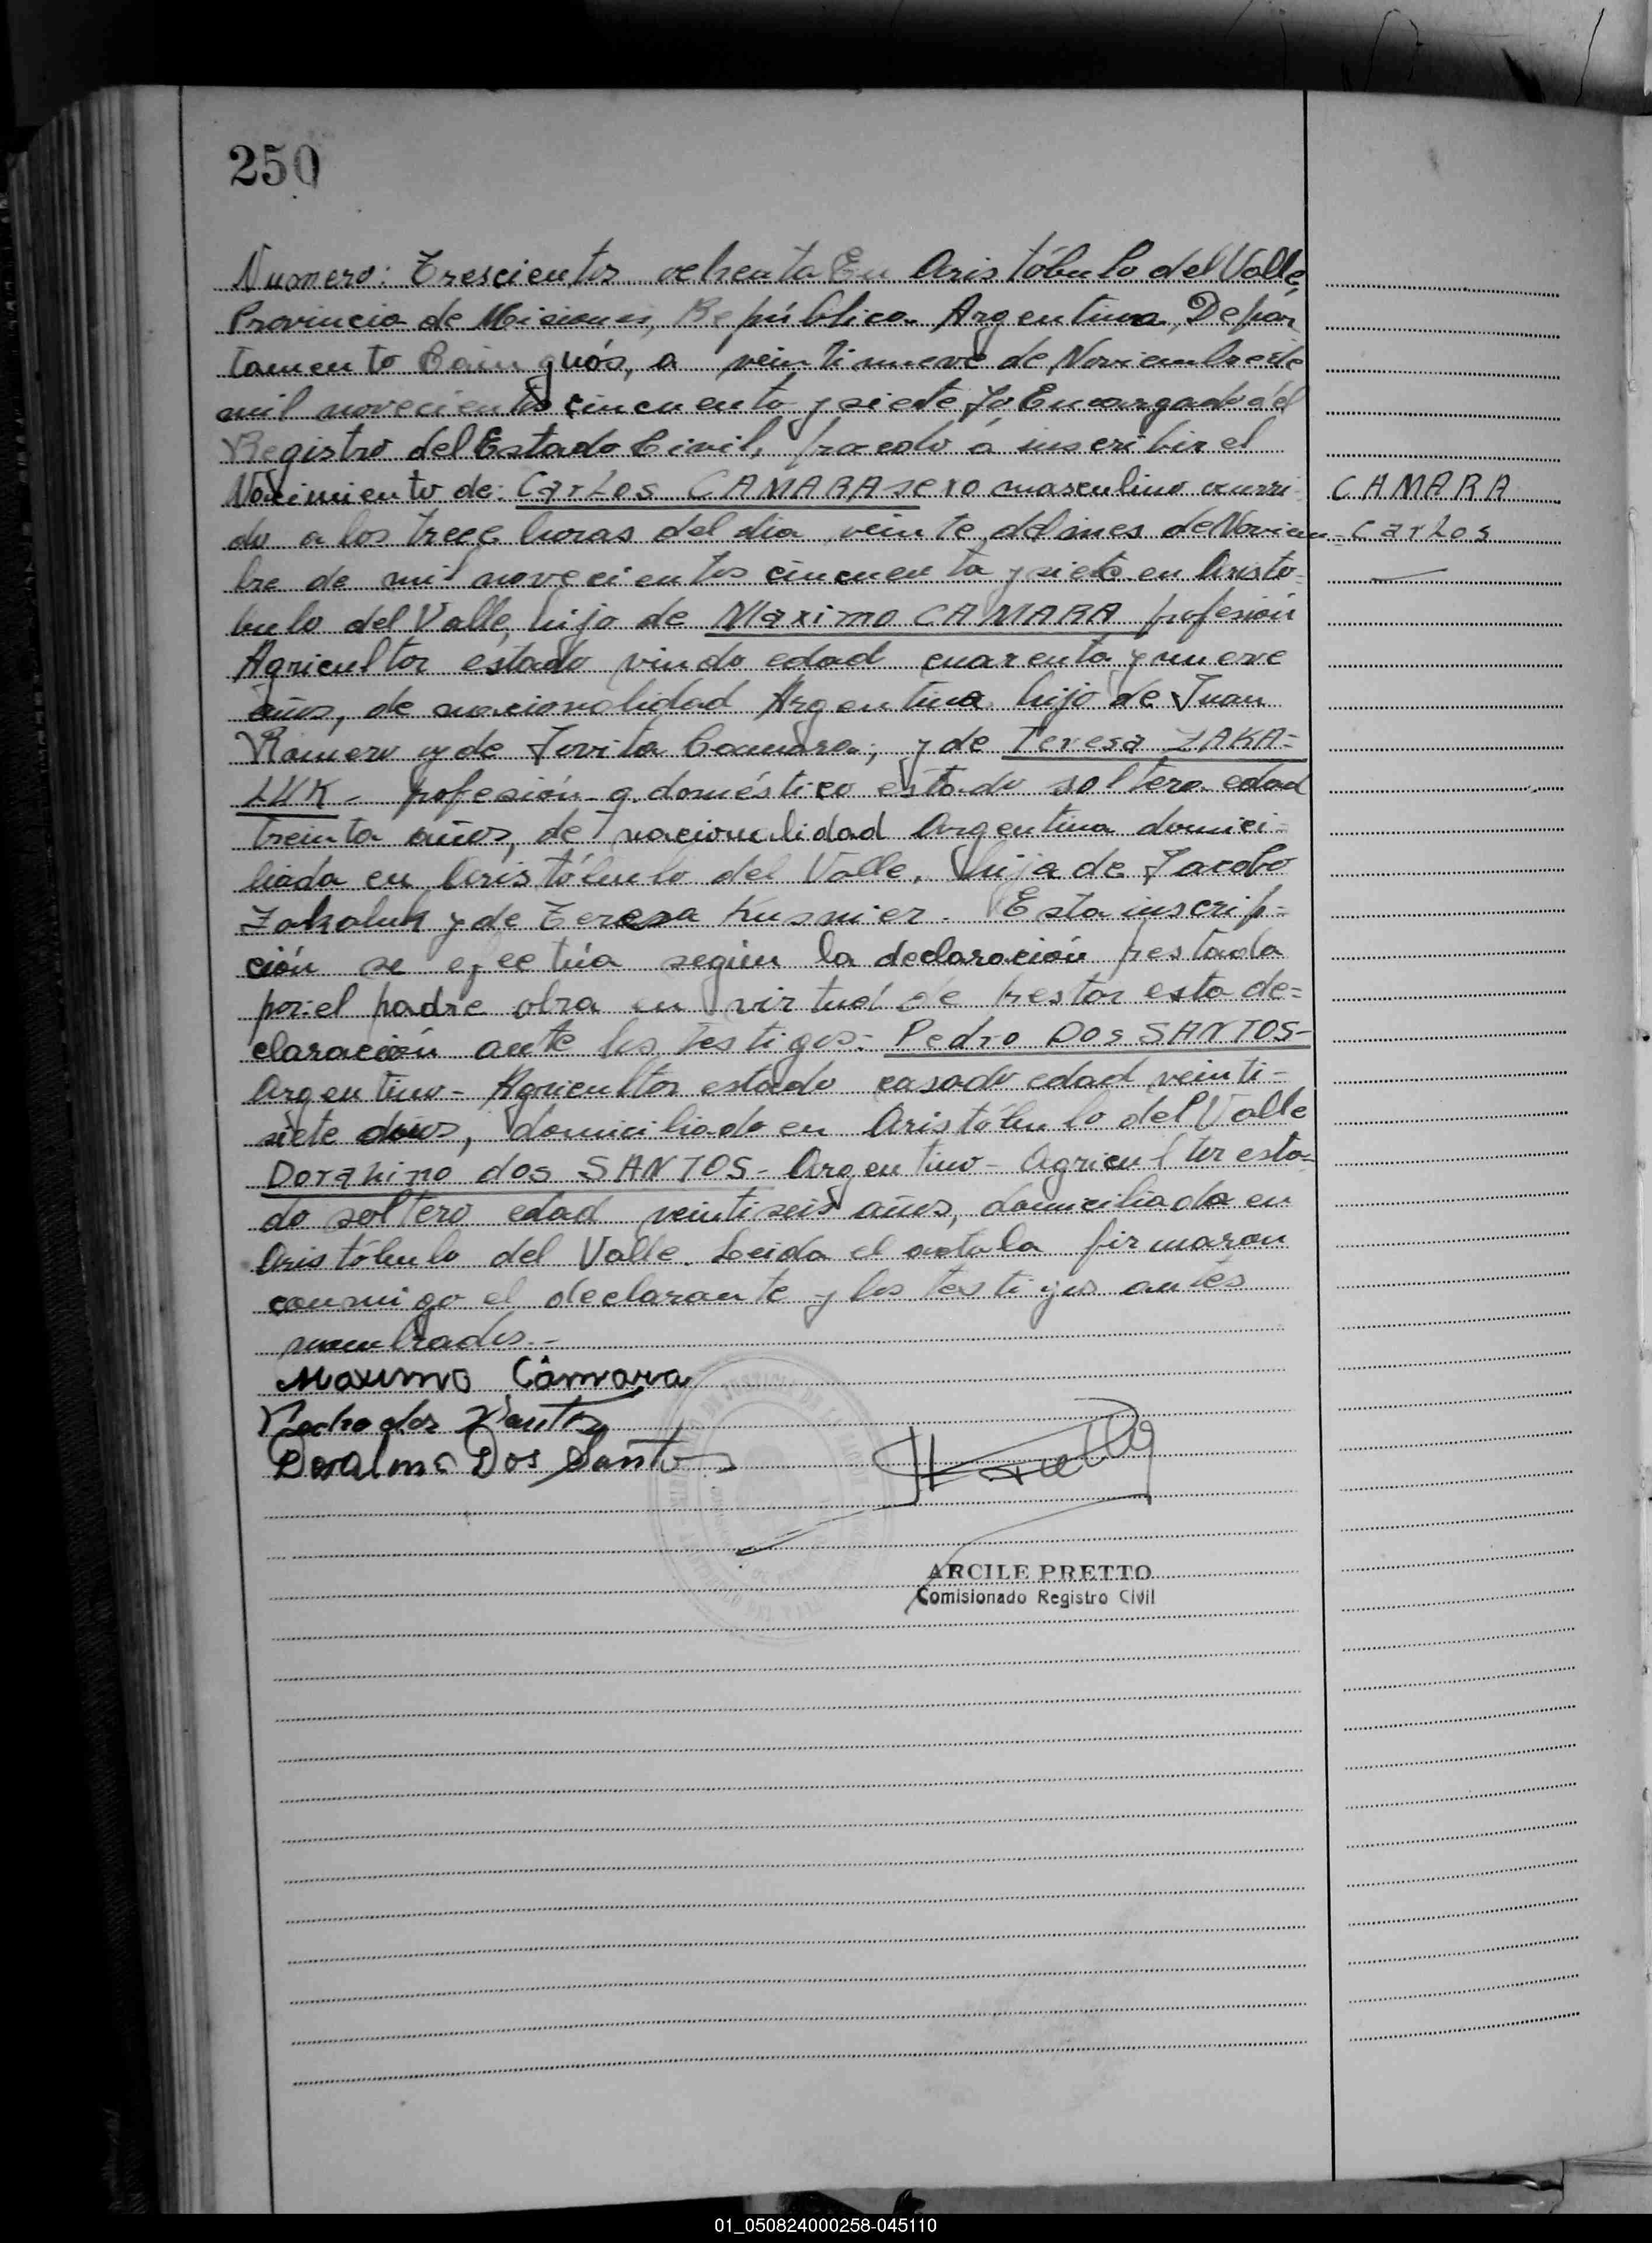 250
Numero: Trescientos ochenta En Aristóbulo del Valle
Provincia de Misiones, República Argentina, Depar
tamento Cainguás, a veintinueve de Noviembre de
mil novecientos cincuenta y siete Yo Encargado del
Registro del Estado Civil, procedo á inscribir el
Nacimiento de: Carlos CAMARA sexo masculino ocurri-
CAMARA
do a los trece horas del día veinte del mes de Noviem=
Carlos
bre de mil novecientos cincuenta y siete en Aristo=
bulo del Valle, hijo de Maximo CAMARA profesión
Agricultor estado viudo edad cuarenta y nueve
años, de nacionalidad Argentina hijo de Juan
Romero y de Jovita Camara; y de Teresa ZAKA=
LUK - profesión q. doméstico estado soltera edad
treinta años, de nacionalidad Argentina domici=
liada en Aristóbulo del Valle. hija de Jacobo
Zakaluk y de Teresa Kusnier. Esta inscrip=
ción se efectúa según la declaración prestada
por: el padre obra en virtud de prestar esta de=
claración ante los testigos: Pedro DOS SANTOS-
Argentino - Agricultor estado casado edad veinti-
siete años, domiciliado en Aristóbulo del Valle
dos SANTOS - Argentino - Agricultor esta=
do soltero edad veintiseis años, domiciliado en
Aristóbulo del Valle. Leida el acta la firmaron
conmigo el declarante y los testigos antes
nombrados.-
Maximo Câmara
Pedro dos Santos
Dos Santos
ARCILE PRETTO
Comisionado Registro Civil
01_050824000258-045110